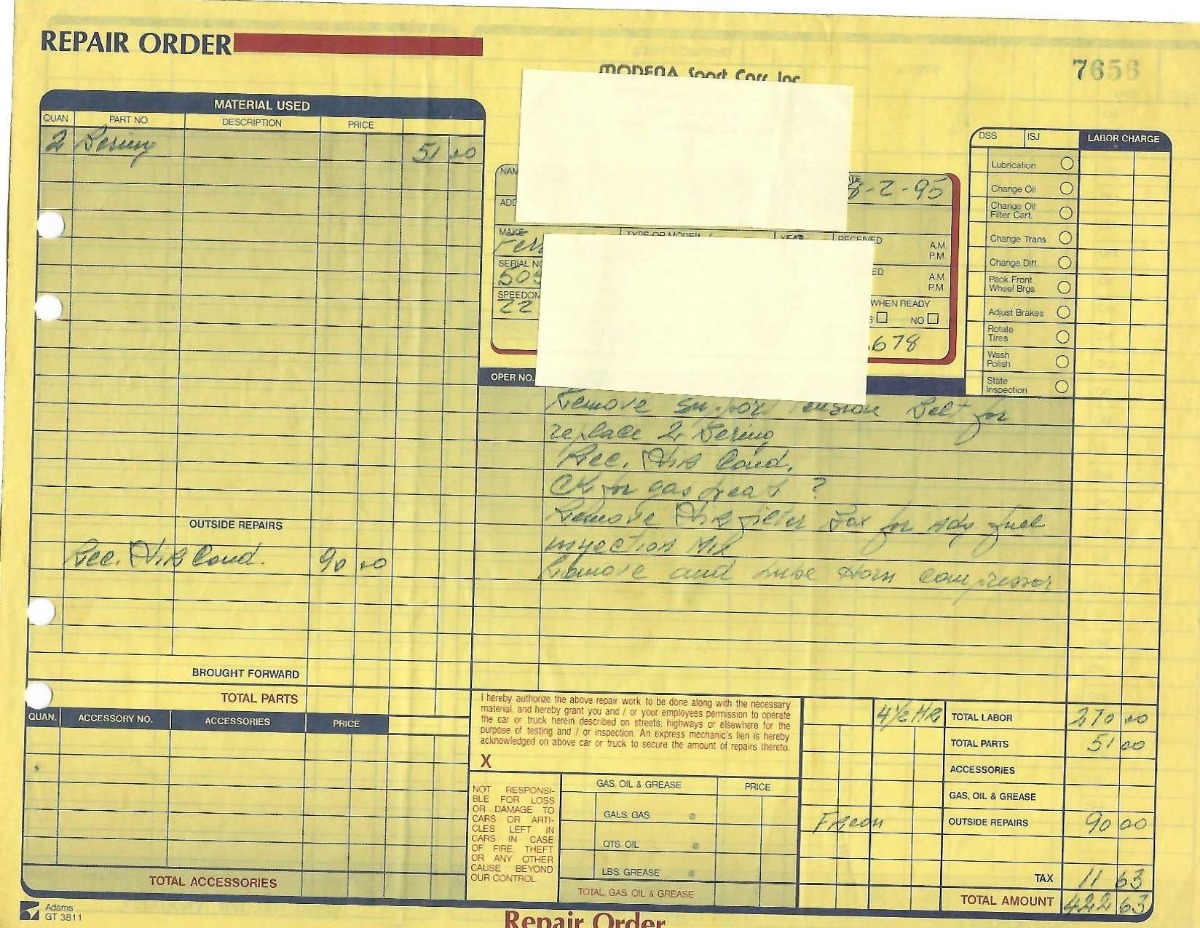 REPAIR ORDER
MODENA Sport Cars Inc
7656
MATERIAL USED
QUAN. PART NO DESCRIPTION PRICE
2 Bering 51 00
DSS ISJ LABOR CHARGE
Lubrication
Change Oil
Change Oil Filter Cart.
Change Trans
Change Diff.
Pack Front Wheel Brgs.
Adjust Brakes
Rotate Tires
Wash Polish
State Inspection
8-2-95
MAKE
YEAR RECEIVED A.M.
P.M.
SERIAL NO
A.M.
P.M.
505
SPEEDOM
22
WHEN READY
NO
678
OPER NO.
Remove Tension Belt for
replace 2 Bering
Rec. Air Cond.
Remove Air filter Box for Adj. fuel
injection Mix
Remove and lube Horn Compressor
OUTSIDE REPAIRS
Rec. Air Cond. 90 00
BROUGHT FORWARD
TOTAL PARTS
QUAN. ACCESSORY NO. ACCESSORIES PRICE
TOTAL ACCESSORIES
I hereby authorize the above repair work to be done along with the necessary
material, and hereby grant you and / or your employees permission to operate
the car or truck herein described on streets, highways or elsewhere for the
purpose of testing and / or inspection. An express mechanic's lien is hereby
acknowledged on above car or truck to secure the amount of repairs thereto.
X
NOT RESPONSI-
BLE FOR LOSS
OR DAMAGE TO
CARS OR ARTI-
CLES LEFT IN
CARS IN CASE
OF FIRE, THEFT
OR ANY OTHER
CAUSE BEYOND
OUR CONTROL
GAS, OIL & GREASE PRICE
GALS. GAS @
QTS. OIL @
LBS. GREASE @
TOTAL GAS, OIL & GREASE
4 1/2 HR TOTAL LABOR 270 00
TOTAL PARTS 51 00
ACCESSORIES
GAS, OIL & GREASE
Freon OUTSIDE REPAIRS 90 00
TAX 11 63
TOTAL AMOUNT 422 63
Adams
GT 3811
Repair Order